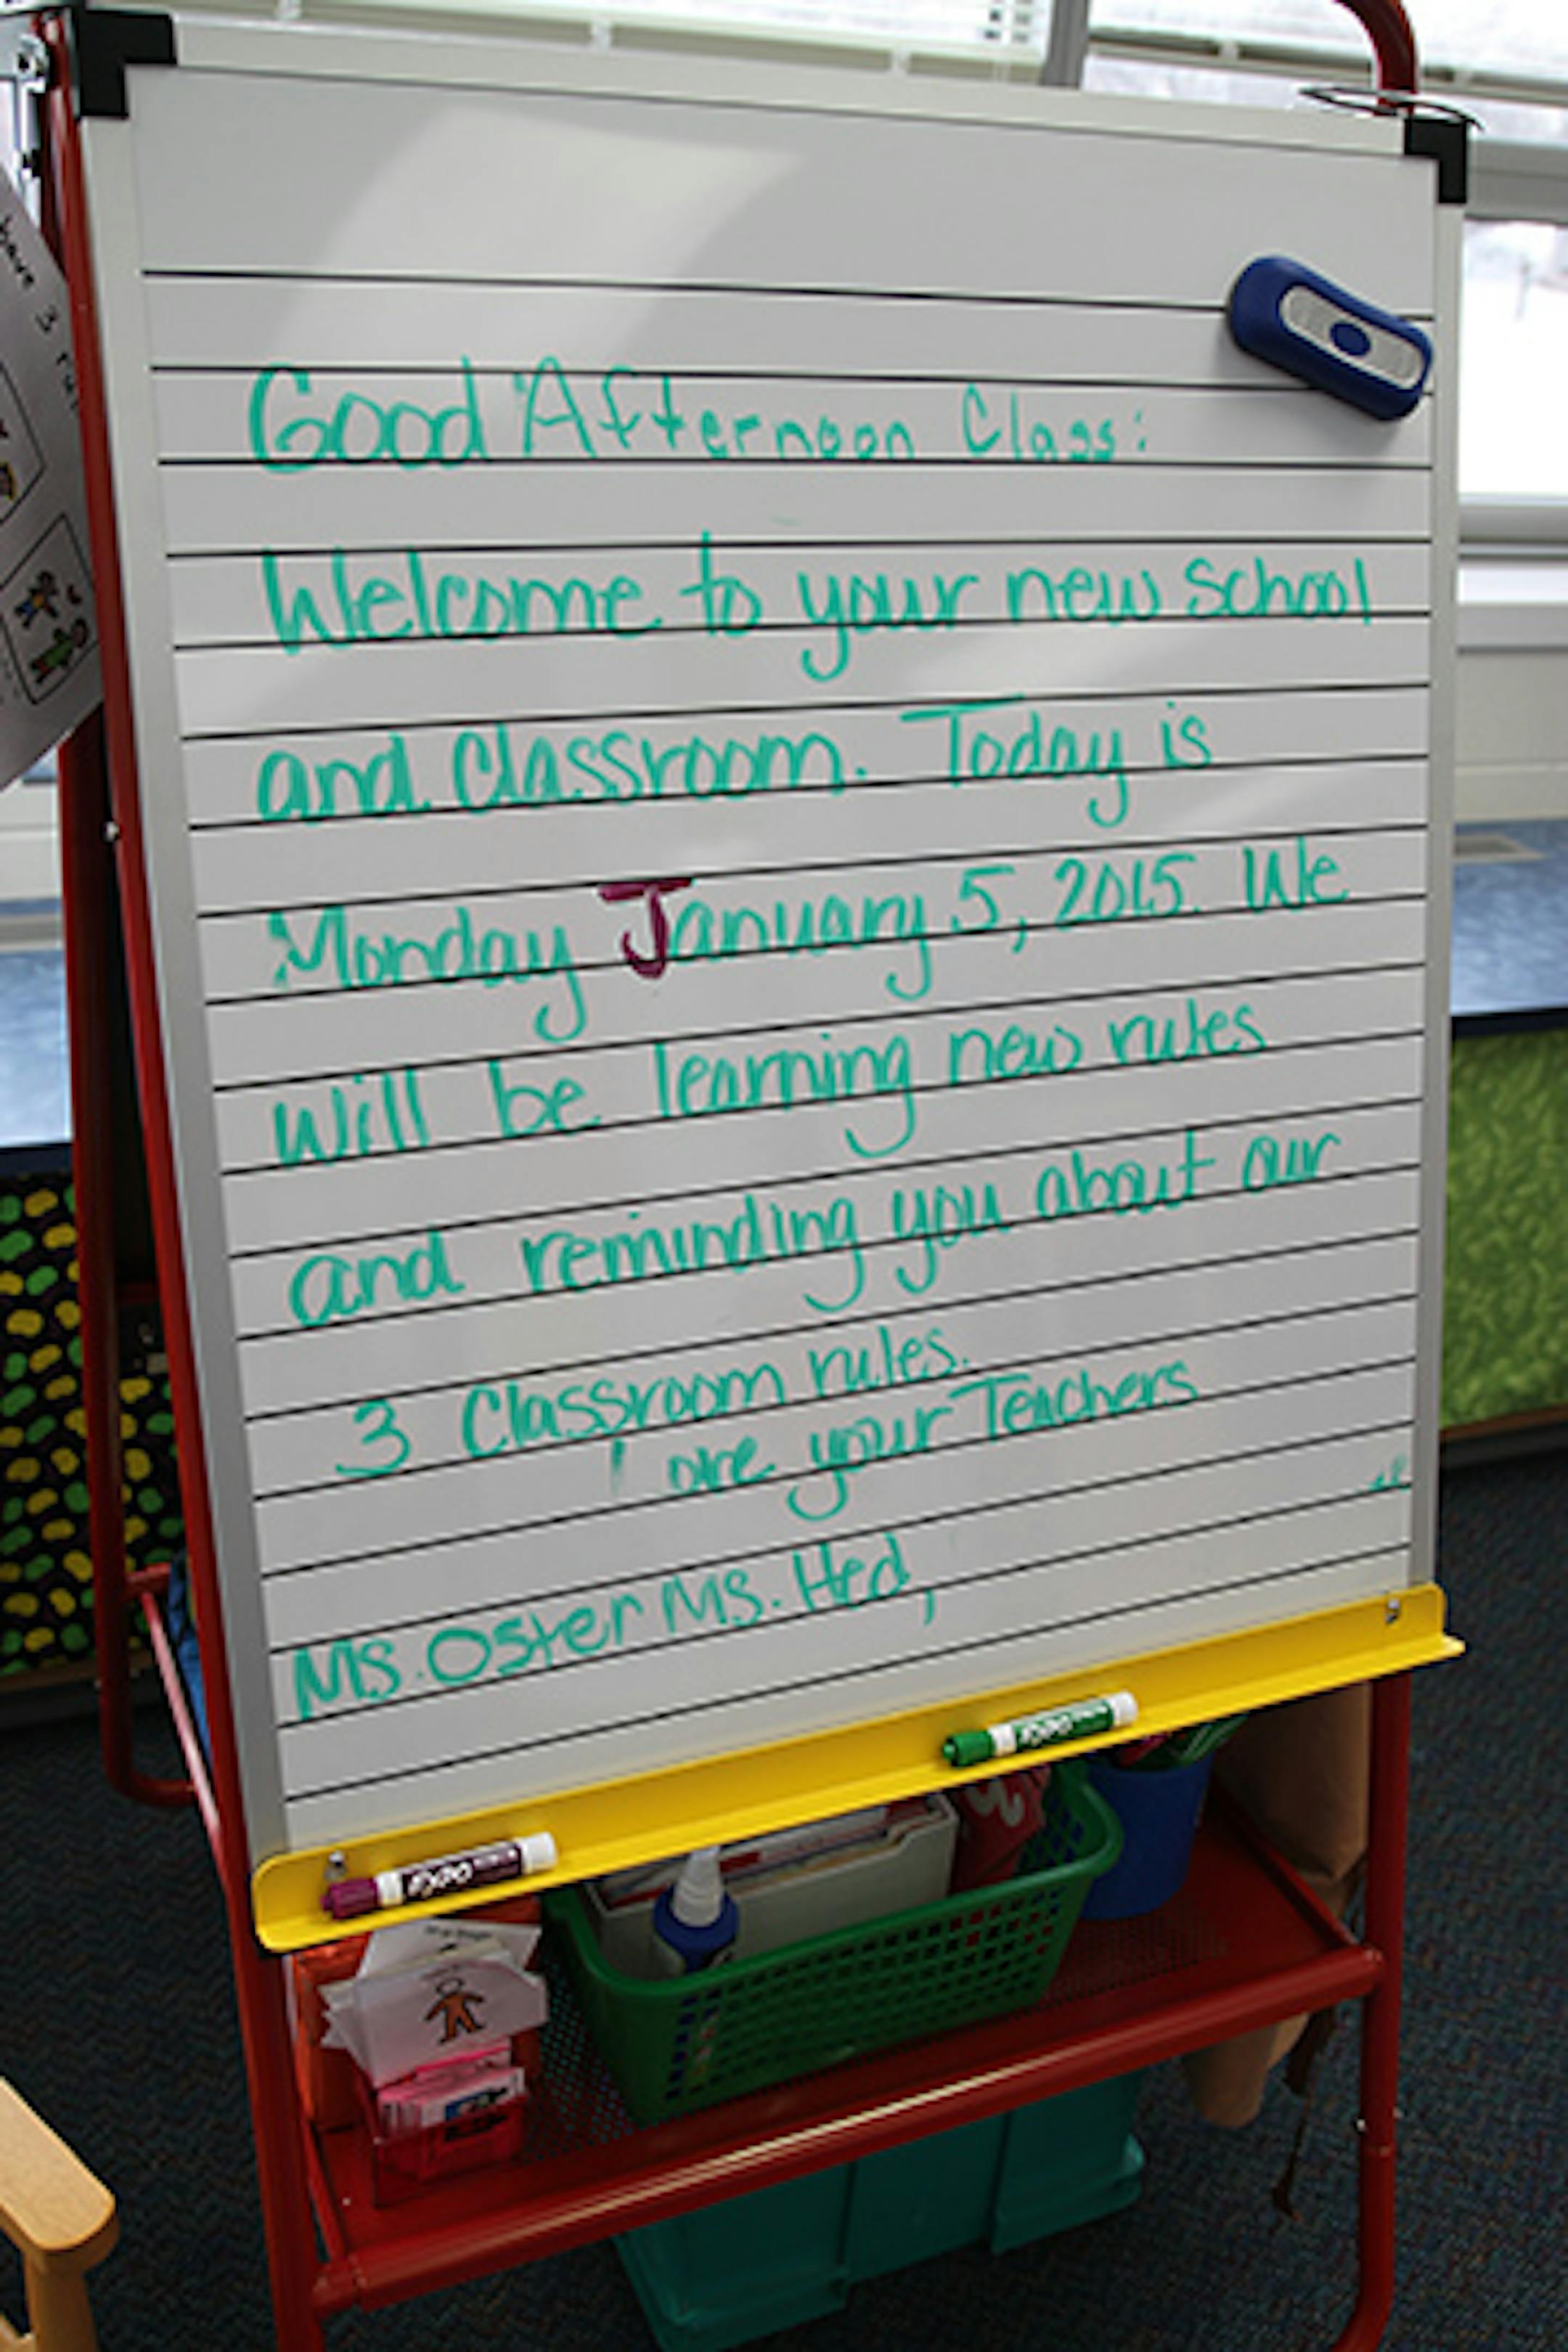 Good Afternoon Class:
Welcome to your new School
and classroom. Today is
Monday January 5, 2015. We
will be learning new rules
and reminding you about our
3 Classroom rules.
are your Teachers
Ms. Oster Ms. Hed,
EXPO
EXPO
have 3